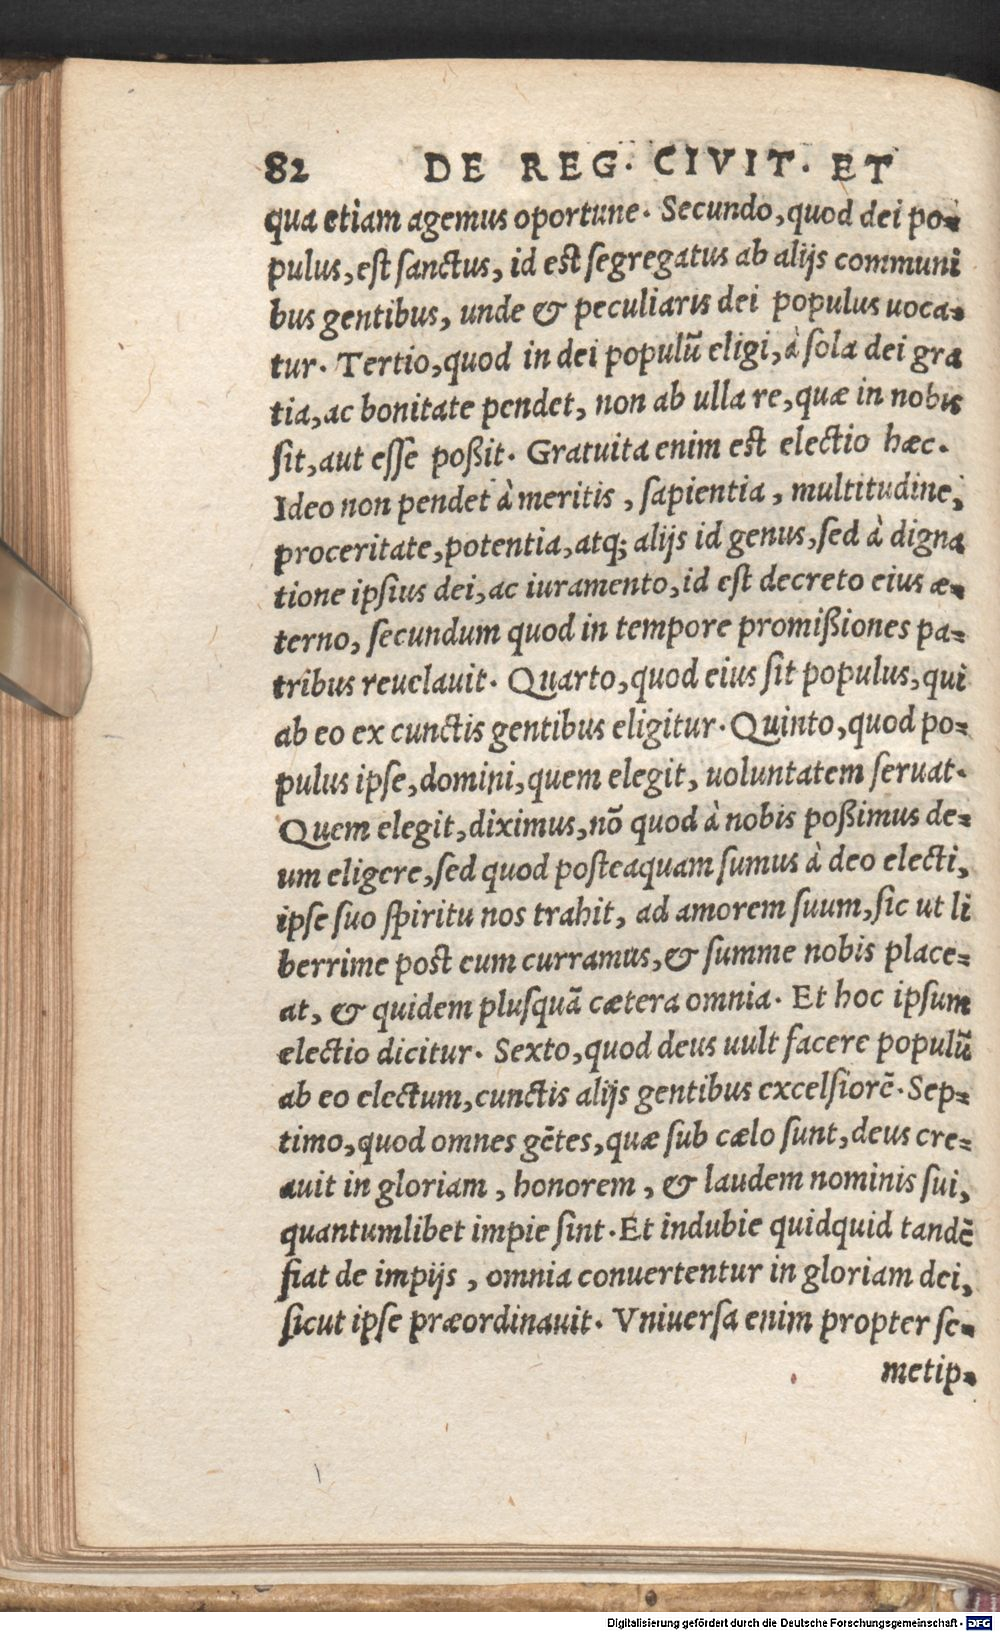 82 DE REG. CIVIT. ET
qua etiam agemus oportune. Secundo, quod dei po-
pulus, est sanctus, id est segregatus ab alijs communi
bus gentibus, unde & peculiaris dei populus uoca-
tur. Tertio, quod in dei populũ eligi, à sola dei gra
tia, ac bonitate pendet, non ab ulla re, quæ in nobis
sit, aut esse poßit. Gratuita enim est electio hæc.
Ideo non pendet à meritis, sapientia, multitudine,
proceritate, potentia, atq; alijs id genus, sed à digna
tione ipsius dei, ac iuramento, id est decreto eius æ-
terno, secundum quod in tempore promißiones pa-
tribus reuelauit. Quarto, quod eius sit populus, qui
ab eo ex cunctis gentibus eligitur. Quinto, quod po-
pulus ipse, domini, quem elegit, uoluntatem seruat.
Quem elegit, diximus, nõ quod à nobis poßimus de-
um eligere, sed quod posteaquam sumus à deo electi,
ipse suo spiritu nos trahit, ad amorem suum, sic ut li
berrime post eum curramus, & summe nobis place-
at, & quidem plusquã cætera omnia. Et hoc ipsum
electio dicitur. Sexto, quod deus uult facere populũ
ab eo electum, cunctis alijs gentibus excelsiorẽ. Sep-
timo, quod omnes gẽtes, quæ sub cælo sunt, deus cre-
auit in gloriam, honorem, & laudem nominis sui,
quantumlibet impie sint. Et indubie quidquid tandẽ
fiat de impijs, omnia conuertentur in gloriam dei,
sicut ipse præordinauit. Vniuersa enim propter se-
metip-
Digitalisierung gefördert durch die Deutsche Forschungsgemeinschaft - DFG